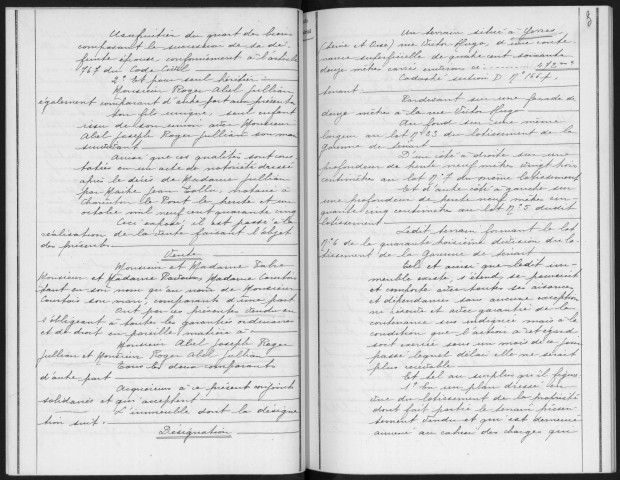 Usufruitier du quart des biens
composant la succession de sa dé-
funte épouse, conformément à l'article
767 du Code Civil
2° Et pour seul héritier
Monsieur Roger Abel Jullian
également comparant d'autre part aux présentes
son fils unique, seul enfant
issu de son union avec Monsieur
Abel Joseph Roger Jullian son mari
survivant.
Ainsi que ces qualités sont cons-
tatées en un acte de notoriété dressé
après le décès de Madame Jullian
par Maître Jean Collin, notaire à
Charenton le Pont le trente et un
octobre mil neuf cent quarante cinq
Ceci exposé, il est passé à la
réalisation de la vente faisant l'objet
des présentes.
Vente
Monsieur et Madame
Monsieur et Madame Madame Courtois
tant en son nom qu'au nom de Monsieur
Courtois son mari, comparants d'une part
Ont par ces présentes vendu en
s'obligeant à toutes les garanties ordinaires
et de droit en pareille matière à
Monsieur Abel Joseph Roger
Jullian et Monsieur Roger Abel Jullian
Tous les deux comparants
d'autre part
Acquéreurs à ce présent conjoints
solidaires et qui acceptent
L'immeuble dont la désigna
tion suit.
Désignation
Un terrain situé à Yerres
(Seine et Oise) rue Victor Hugo, d'une conte-
nance superficielle de quatre cent soixante
douze mètres carrés environ ci 472 m²
Cadastré section D N°
tenant
Par devant sur une façade de
douze mètres à la rue Victor Hugo
Au fond sur une même
largeur au lot N° 23 du lotissement de la
Garenne de Senart
D'un côté à droite sur une
profondeur de trente neuf mètres vingt trois
centimètres au lot N° 7 du même lotissement
Et d'autre côté à gauche sur
une profondeur de trente neuf mètres cin-
quante cinq centimètres au lot N° 5 dudit
lotissement
Ledit terrain formant le lot
N° 6 de la quarante troisième division du lo
tissement de la Garenne de Senart
Tels et ainsi que ledit im-
meuble existe, s'étend, se poursuit
et comporte avec toutes ses aisances
et dépendances sans aucune exception
ni réserve et avec garantie de la
contenance sus indiquée mais à la
condition que l'action à cet égard
soit exercée sous un mois de ce jour
passé lequel délai elle ne serait
plus recevable
Et tel au surplus qu'il figure
1° En un plan dressé en
vue du lotissement de la propriété
dont fait partie le terrain présen-
tement vendu et qui est demeuré
annexé au cahier des charges qui